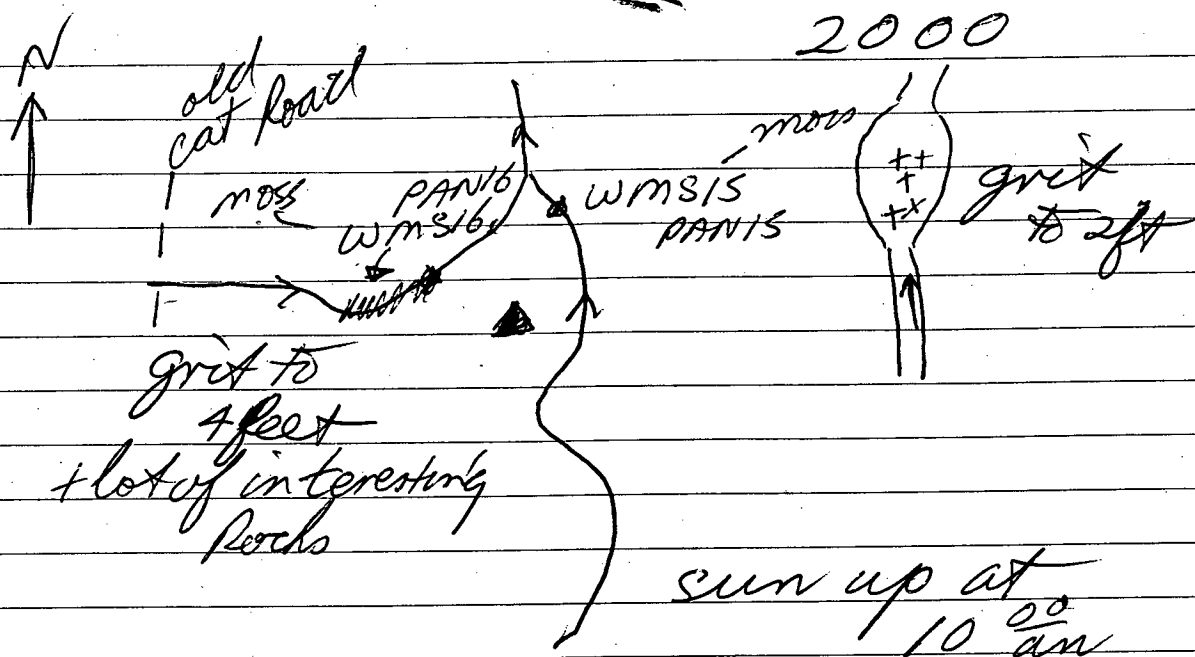 2000
N
old
cat Road
moss
moss
PAN16
WMS16
WMS15
PAN15
grit
to 2ft
grit to
4 feet
+ lot of interesting
Rocks
sun up at
10 00 am